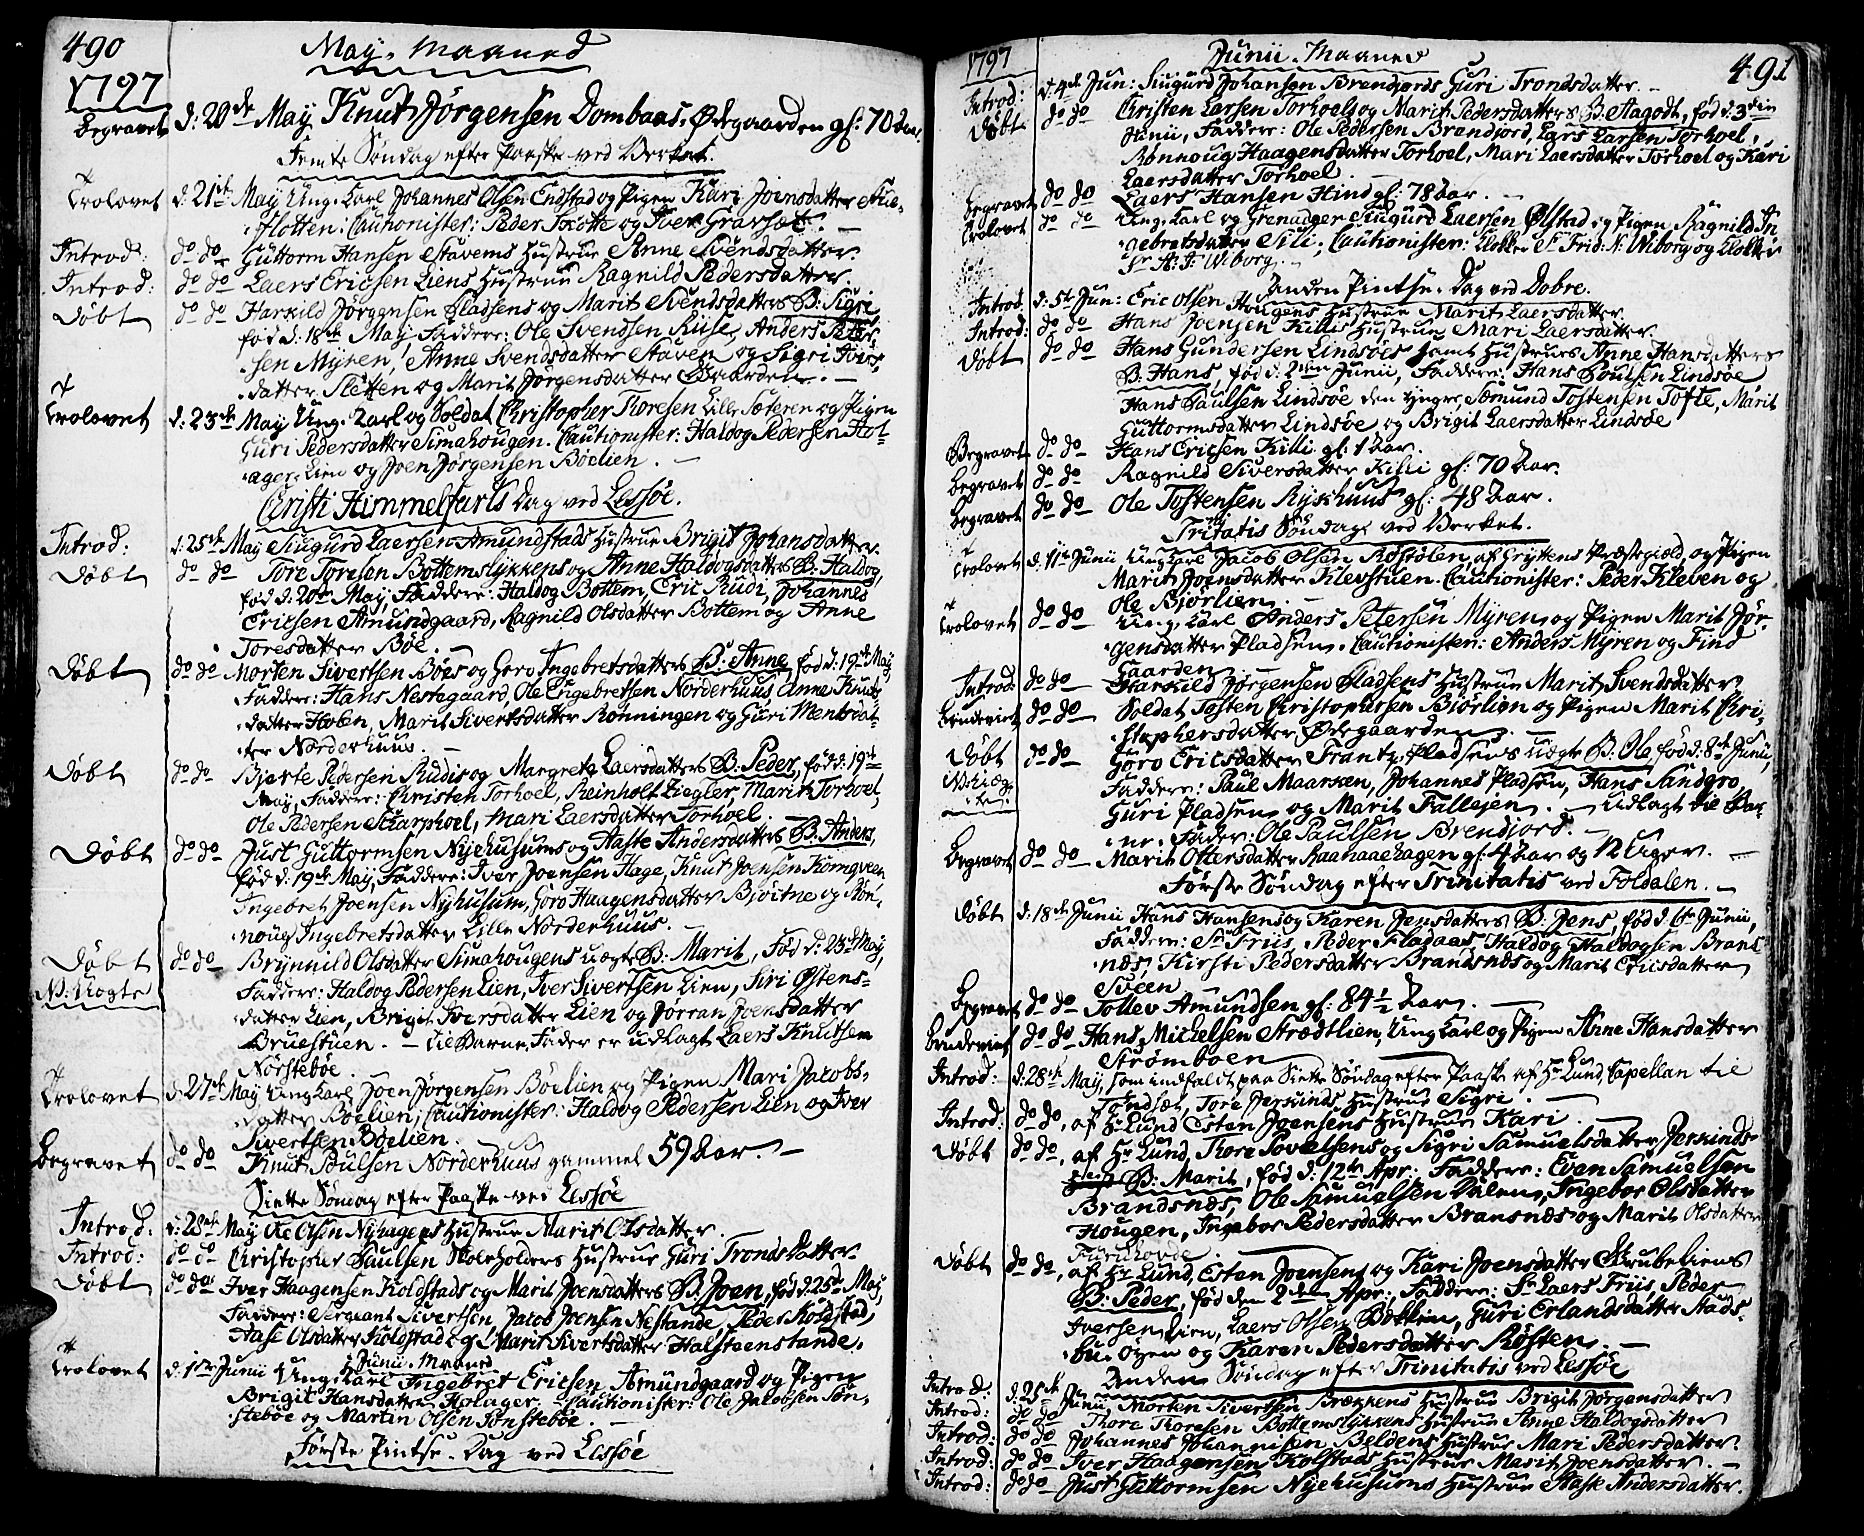 490
May. Maaned
1797
Begravet d. 20de May Knut Jørgensen Dombaas-Ødegaarden gl: 70 Aar
Femte Søndag efter Paaske ved Verket.
Trolovet d. 21de May Ung. Karl Johannes Olsen Endstad og Pigen Kari Joensdatter Stue-
flotten: Cautionister: Peder Skotte og Iver
Introd: do do Guttorm Hansen Stavems Hustrue Anne Svendsdatter.
Introd: do do Laers Ericsen Liens Hustrue Ragnild Pedersdatter
Døbt do do Harkild Jørgensen Pladsens og Marit Svendsdatters B: Sigri
fød d. 18de May Faddere: Ole Svendsen Riise, Anders Peter-
sen Myren, Anne Svendsdatter Staven og Sigri Ivers-
datter Sletten og Marit Jørgensdatter Gaarden. —
Trolovet d. 23de May Ung. Karl og Soldat Christopher Thoresen Lille Sæteren og Pigen
Guri Pedersdatter Simahougen. Cautionister: Haldog Pedersen Hol-
ager Lien og Joen Jørgensen Böelien. —
Christi Himmelfarts Dag ved Lessøe.
Introd: d. 25de May Siugurd Laersen Amundstads Hustrue Brigit Johansdatter
Døbt do do Tore Toresen Bottemslykkens og Anne Haldogsdatters B: Haldog,
fød d. 20de May, Faddere: Haldog Bottem, Eric Rudi, Johannes
Ericsen Amundgaard, Ragnild Olsdatter Bottem og Anne
Toresdatter Böe. —
Døbt do do Morten Sivertsen Böes og Goro Ingebretsdatters B: Anne, fød d: 19de May
Faddere: Hans Nestegaard Ole Engebretsen Norderhuus Anne Knuts-
datter Holen, Marit Sivertsdatter Rønningen og Guri Mentsdat-
ter Norderhuus. —
Døbt do do Bjerte Pedersen Rudis og Margrete Laersdatters B: Peder, fød d: 19de
May, Faddere: Christen Torhoel, Reinholt Ziegler, Marit Torhoel,
Ole Pedersen Skarphoel, Mari Laersdatter Torhoel.
Døbt do do Just Guttormsen Nyehusums og Aaste Andersdatters B: Anders,
fød d: 19de May, Faddere: Iver Joensen Hage, Knut Joensen Korngveen
Ingebret Joensen Nyhusum, Goro Haagensdatter Bjöitne og Røn-
noug Ingebretsdatter Lille Norderhuus.
Døbt do do Brynnild Olsdatter Simahougens uægte B: Marit, Fød d: 23de May,
N: Uægte Faddere: Haldog Pedersen Lien, Iver Sivertsen Lien, Siri Ostens-
datter Lien, Brigit Iversdatter Lien og Jørran Joensdatter
Bruestuen. — Til Barne Fader er udlagt Laers Knutsen
Nörsteböe.
Trolovet d. 27de May Ung Karl Joen Jørgensen Böelien og Pigen Mari Jacobs-
datter Böelien, Cautionister: Haldog Pedersen Lien og Iver
Sivertsen Böelien.
Begravet do do Knut Poulsen Norderhuus gammel 59 Aar. —
Siette Søndag efter Paaske ved Lessöe
Introd. d. 28de May Ole Olsen Nyhagens Hustrue Marit Olsdatter.
Introd: do do Christopher Paulsen Skoleholders Hustrue Guri Tronds datter
Døbt do do Iver Haagensen Koldstads og Marit Joensdatters B: Joen, fød d. 25de May,
Faddere: Sergeant Sivertsen, Jacob Joensen Nestande, Peder Kolstad,
Aase Olsdatter Kolstad og Marit Sivertsdatter Halsteenstande.
Junii. Maaned
Trolovet d. 1ste Junii Ung. Karl Ingebret Ericsen Amundgaard og Pigen
Brigit Hansdatter Holager. — Cautionister: Ole Jacobsen Tøn-
steböe og Martin Olsen Tønsteböe. —
Første Pintse. Dag ved Lessöe
1797
Junii. Maaned
491
Introd: d. 4de Jun: Siugurd Johansen Brendjords Guri Trondsdatter.
Døbt do do Christen Larsen Torhoels og Marit Pedersdatters B. Aagodt, fød d. 3die
Junii, Faddere: Ole Pedersen Brendjord, Lars Larsen Torhoel,
Rønnoug Haagensdatter Torhoel, Mari Laersdatter Torhoel og Kari
Laersdatter Torhoel.
Begravet do do Laers Hansen Hind gl: 78 Aar. —
Trolovet do do Ung. Karl og Grenadeer Siugurd Laersen Ølstad og Pigen Ragnild In-
gebretsdatter Sili, Cautionister: Klokker Sr Frid: N: Wiborg og Klokker
Sr A: J: Wiborg. —
Anden Pintse. Dag ved Dobre.
Introd d. 5te Jun: Eric Olsen Hougens Hustrue Marit Laersdatter.
Introd: do do Hans Joensen Killis Hustrue Mari Laersdatter.
Døbt do do Hans Gundersen Lindsöes samt Hustrues Anne Hansdatters
B. Hans, fød d. 2den Junii, Faddere: Hans Poulsen Lindsöe
Hans Paulsen Lindsöe den yngre, Sæmund Tostensen Tofte, Marit
Guttormsdatter Lindsöe og Brigit Laersdatter Lindsöe
Begravet do do Hans Ericsen Killi gl: 1 Aar.
Begravet do do Ragnild Siversdatter Killi gl: 70 Aar.
Begravet do do Ole Tostensen Rykhuus gl: 48 Aar.
Tritatis Søndag ved Verket.
Trolovet d. 11te Junii Ung Karl Jacob Olsen Kostölen, af Gryttens Præstegield, og Pigen
Marit Joensdatter Klevstuen. Cautionister: Peder Kleven og
Ole Bjørlien. —
Trolovet do do Ung. Karl Anders Petersen Myren og Pigen Marit Jør-
gensdatter Pladsen. Cautionister: Anders Myren og Find
Gaarden. —
Introd: do do Harkild Jørgensen Pladsens Hustrue Marit Svendsdatter
Brudeviet do do Soldat Tosten Christophersen Biørlien og Pigen Marit Chri-
stophersdatter Ødegaarden. —
Døbt do do Goro Ericsdatter Frantz Pladsens uægte B. Ole fød d. 8de Junii,
Faddere: Paul Maarsæn, Johannes Pladsen, Hans Sandgro
Guri Pladsen og Marit Fallesen. — Udlagt til Bar-
ne. Fader: Ole Paulsen Brendjord. —
Begravet do do Marit Ottersdatter Raanaaehagen gl: 4 Aar og 12 Uger. —
Første Søndag efter Trinitatis ved Foldalen. —
Døbt d. 18de Junii Hans Hansens og Karen Jensdatters B. Jens, fød d. 6te Junii,
Faddere: Sr Friis, Peder Fladaas, Haldog Haldogsen Brand-
næs, Kirsti Pedersdatter Brandsnæs og Marit Ericsdatter
Sveen
Begravet do do Tollev Amundsen gl: 84 1/2 Aar. —
Brudeviet do do Hans Mickelsen Strædtlien, Ung Karl og Pigen Anne Hansdatter
Strømboen
Introd: d. 28de May, som indfaldt paa Siette Søndag efter Paaske af Hr Lund, Capellan til
Tøndset, Tore Jerkinds Hustrue Sigri. —
Introd: do do, af Hr Lund Esten Joensens Hustrue Kari.
Døbt do do, af Hr Lund, Thore Povelsens og Sigri Samuelsdatter Jerkinds
B: Marit, fød d: 12te Apr: Faddere: Even Samuelsen
Brandsnæs, Ole Samuelsen Dalen, Ingebor Olsdatter
Hougen, Ingebor Pedersdatter Bransnæs og Marit Olsdatter
Furuhovde.
Døbt do do, af Hr Lund, Esten Joensens og Kari Joensdatter Grubeliens
B: Peder, fød den 2den Apr:, Faddere: Sr Laers Friis, Peder
Iversen Lien, Laers Olsen Bekken, Guri Erlandsdatter Stads-
bu-öyen og Karen Pedersdatter Kösten. —
Anden Søndag efter Trinitatis ved Lessöe
Introd: d. 25de Junii, Morten Sivertsen Brækkens Hustrue Brigit Jørgensdatter
Introd: do do Thore Thoresen Bottemslykkens Hustrue Anne Haldogsdatter
Introd: do do Johannes Johannesen Beldens Hustrue Mari Pedersdatter.
Introd: do do Iver Haagensen Kolstads Hustrue Marit Joensdatter. —
Introd: do do Just Guttormsen Nyehusums Hustrue Aaste Andersdatter.